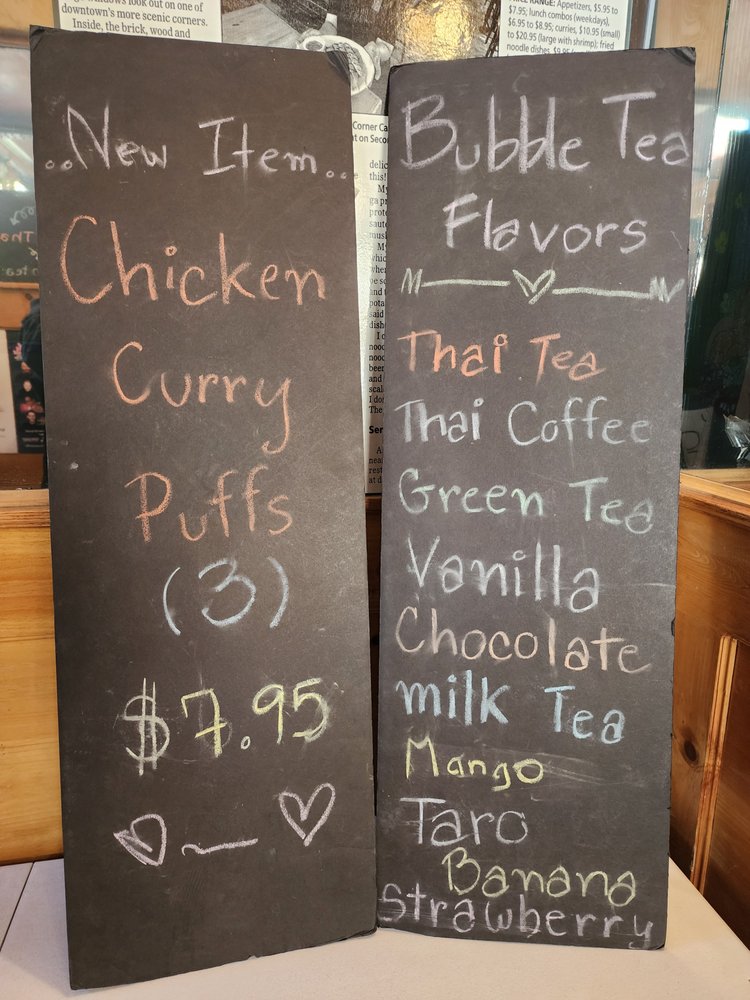 downtown's more scenic corners.
Inside, the brick, wood and
RANGE: Appetizers, $5.95 to
$7.95; lunch combos (weekdays),
$6.95 to $8.95; curries, $10.95 (small)
to $20.95 (large with shrimp); fried
noodle dishes,
..New Item..
Chicken
Curry
Puffs
(3)
$7.95
Bubble Tea
Flavors
Thai Tea
Thai Coffee
Green Tea
Vanilla
Chocolate
milk Tea
Mango
Taro
Banana
Strawberry